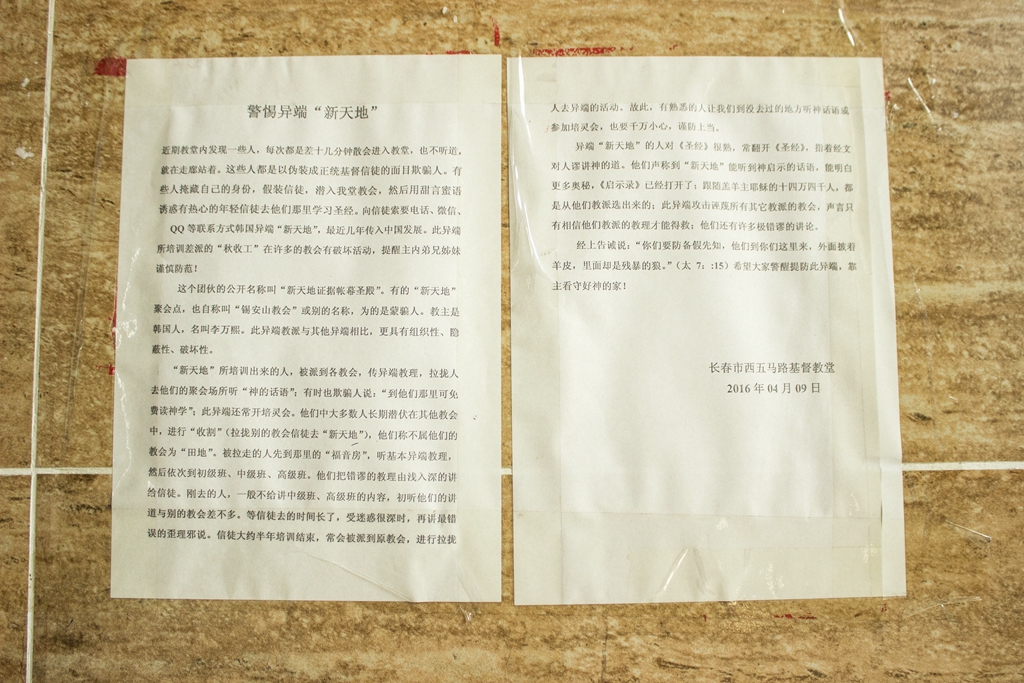 警惕异端“新天地”
近期教堂内发现一些人，每次都是差十几分钟散会进入教堂，也不听道，
就在走廊站着。这些人都是以伪装成正统基督信徒的面目欺骗人。有
些人掩藏自己的身份，假装信徒，潜入我堂教会，然后用甜言蜜语
诱惑有热心的年轻信徒去他们那里学习圣经。向信徒索要电话、微信、
QQ 等联系方式韩国异端“新天地”，最近几年传入中国发展。此异端
所培训差派的“秋收工”在许多的教会有破坏活动，提醒主内弟兄姊妹
谨慎防范！
这个团伙的公开名称叫“新天地证据帐幕圣殿”。有的“新天地”
聚会点，也自称叫“锡安山教会”或别的名称，为的是蒙骗人。教主是
韩国人，名叫李万熙。此异端教派与其他异端相比，更具有组织性、隐
蔽性、破坏性。
“新天地”所培训出来的人，被派到各教会，传异端教理，拉拢人
去他们的聚会场所听“神的话语”；有时也欺骗人说：“到他们那里可免
费读神学”；此异端还常开培灵会。他们中大多数人长期潜伏在其他教会
中，进行“收割”（拉拢别的教会信徒去“新天地”），他们称不属他们的
教会为“田地”。被拉走的人先到那里的“福音房”，听基本异端教理，
然后依次到初级班、中级班、高级班。他们把错谬的教理由浅入深的讲
给信徒。刚去的人，一般不给讲中级班、高级班的内容，初听他们的讲
道与别的教会差不多。等信徒去的时间长了，受迷惑很深时，再讲最错
误的歪理邪说。信徒大约半年培训结束，常会被派到原教会，进行拉拢
人去异端的活动。故此，有熟悉的人让我们到没去过的地方听神话语或
参加培灵会，也要千万小心，谨防上当。
异端“新天地”的人对《圣经》很熟，常翻开《圣经》，指着经文
对人谬讲神的道。他们声称到“新天地”能听到神启示的话语，能明白
更多奥秘，《启示录》已经打开了；跟随羔羊主耶稣的十四万四千人，都
是从他们教派选出来的；此异端攻击诬蔑所有其它教派的教会，声言只
有相信他们教派的教理才能得救；他们还有许多极错谬的讲论。
经上告诫说：“你们要防备假先知，他们到你们这里来，外面披着
羊皮，里面却是残暴的狼。”（太 7：:15）希望大家警醒提防此异端，靠
主看守好神的家！
长春市西五马路基督教堂
2016 年 04 月 09 日